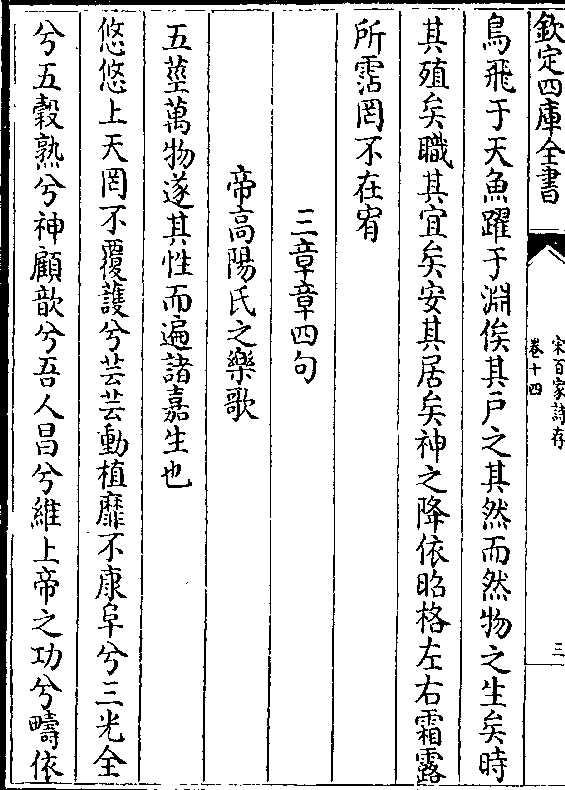 欽定四庫全書
宋百家詩存
卷十四
三
鳥飛于天魚躍于淵俟其戸之其然而然物之生矣時
其殖矣職其宜矣安其居矣神之降依昭格左右霜露
所霑罔不在宥
三章章四句
帝高陽氏之樂歌
五莖萬物遂其性而遍諸嘉生也
悠悠上天罔不覆護兮芸芸動植靡不康阜兮三光全
兮五穀熟兮神顧歆兮吾人昌兮維上帝之功兮疇依